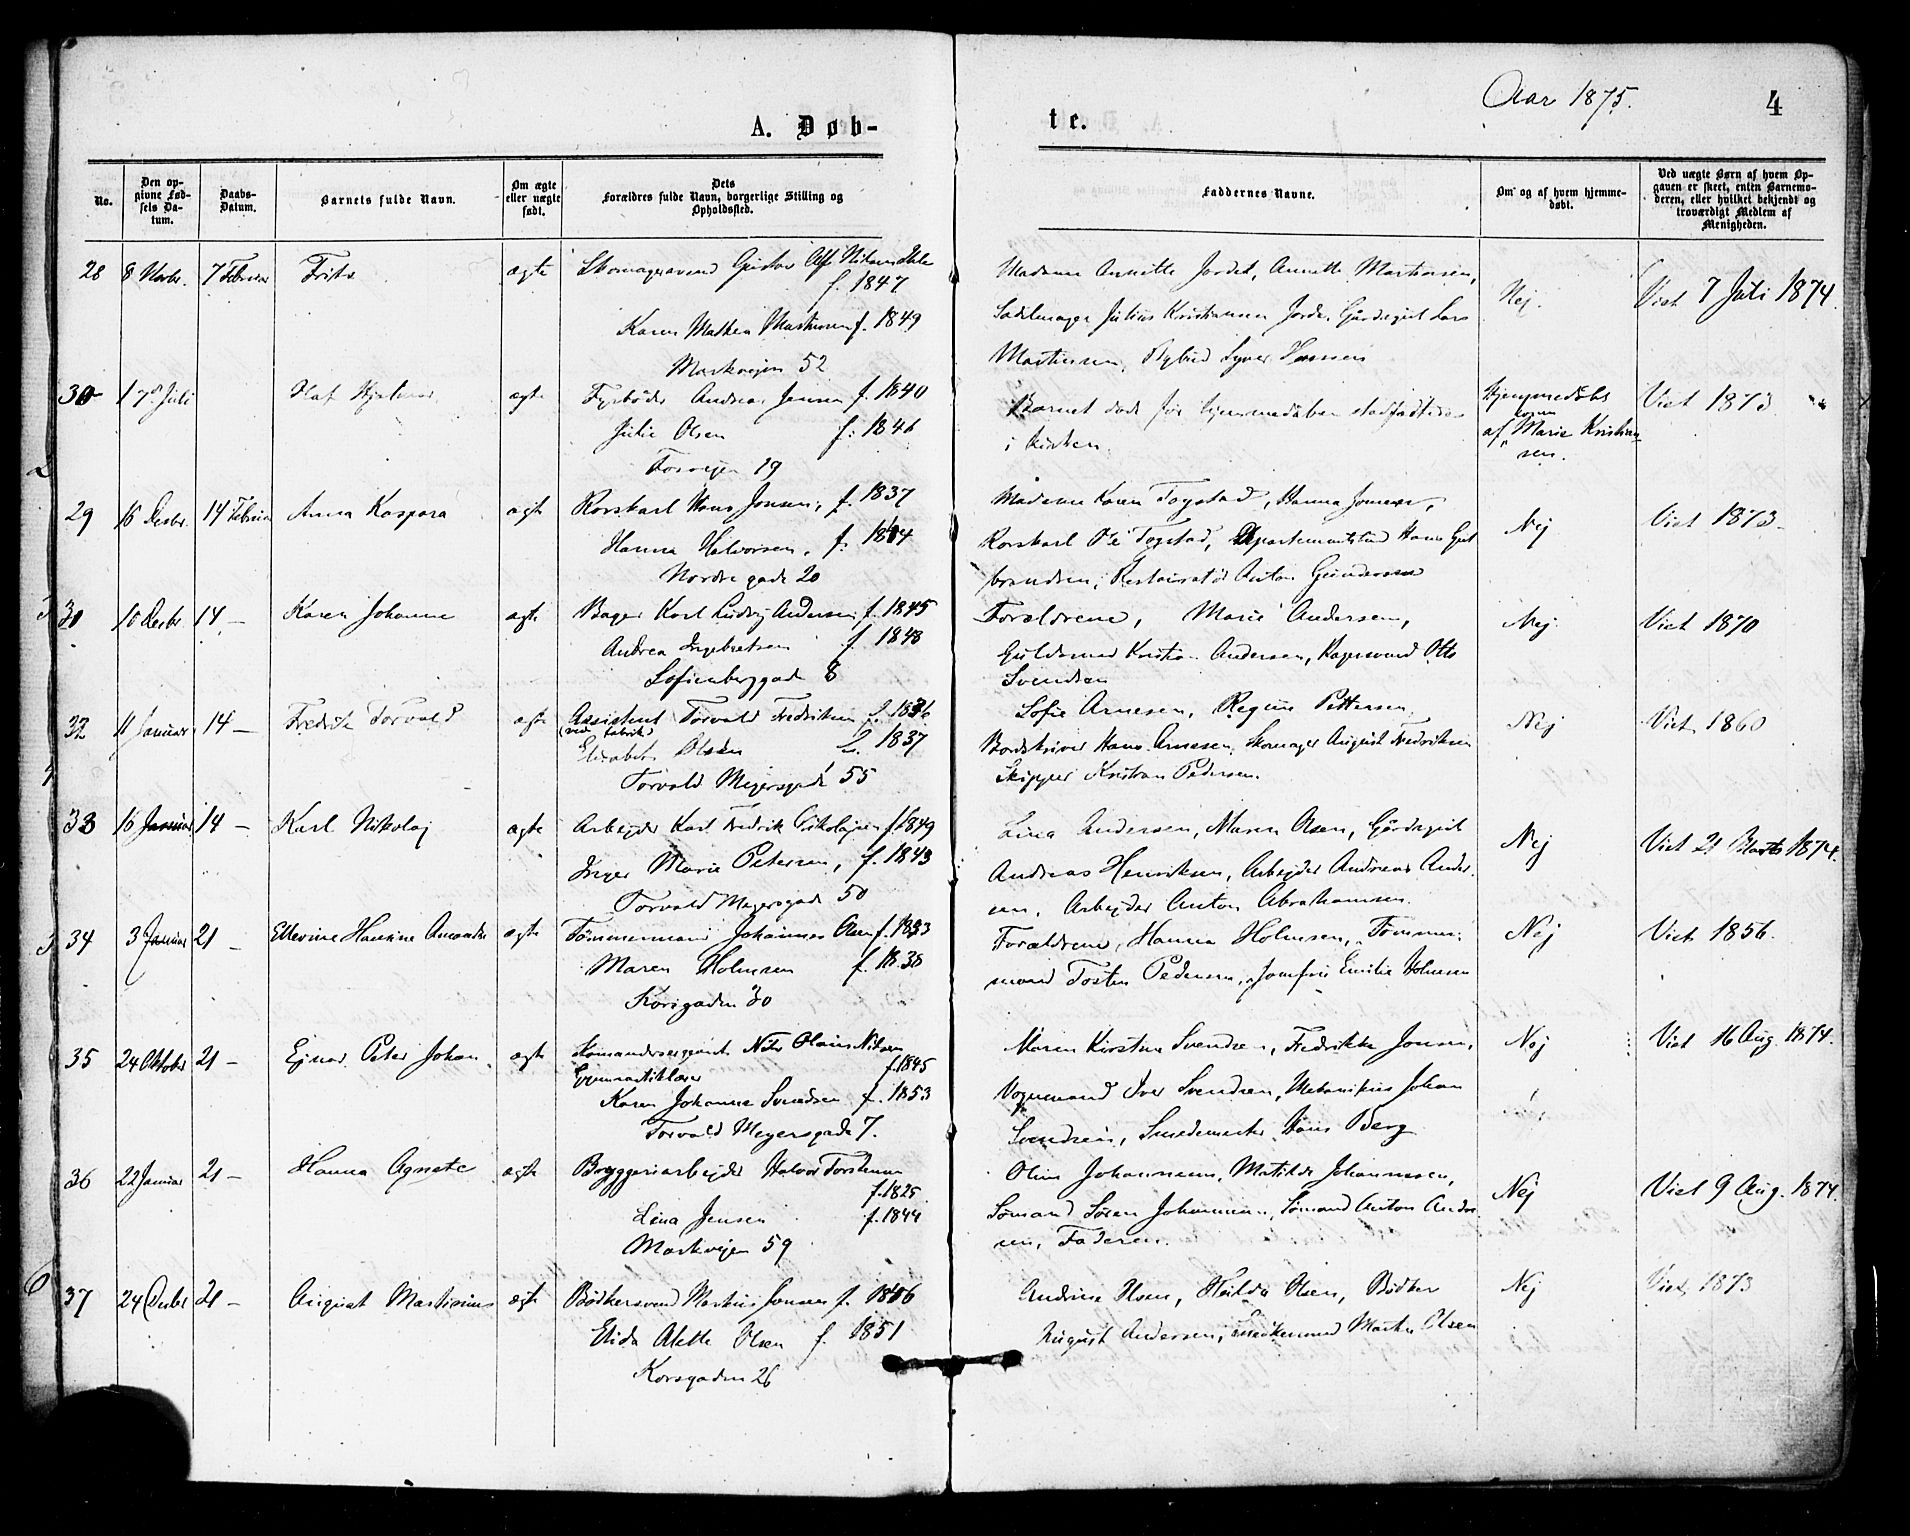 Aar 1875.
4
A. Døb-
te.
No.
Den op-
givne Fød-
sels Da-
tum.
Daabs-
Datum.
Barnets fulde Navn.
Om ægte
eller uægte
født.
Dets
Forældres fulde Navn, borgerlige Stilling og
Opholdssted.
Faddernes Navne.
Om og af hvem hjemme-
døbt.
Ved uægte Børn af hvem Op-
gaven er skeet, enten Barnemo-
deren, eller hvilket bekjendt og
troværdigt Medlem af
Menigheden.
28 8 Novbr. 7 Februar Frits ægte Skomagersvend Gustav
f. 1847
Karen Mathea Martinsen f. 1849
Markvejen 52
Madame Annette Jordet, Annette Martinsen,
Sadelmager Julius Kristiansen Gårdsgut Lars
Martinsen, Bybud Syver Hansen
Nej.
Viet 7 Juli 1874.
30 Juli Hjalmar ægte Fyrbøder Andreas Jensen f. 1840
Julie Olsen f. 1846
Fosvejen 19
Barnet døde før hjemmedåben
i kirken.
Hjemmedøbt
af Marie Kristian
sen.
Viet 1873
29 16 Desbr. 14 Februar Anna Kaspara ægte Rorskarl Hans Jonsen, f. 1837
Hanna Halvorsen, f.
Nordre gade 20
Madame Karen Togstad, Hanna
Rorskarl Ole Togstad, Hans Gul
brandsen, Restauratør Anton Gundersen
Nej
Viet 1873
10 Desbr. 14 — Karen Johanne ægte Bager Karl Ludvig Andersen f. 1845
Andrea Ingebretsen f. 1848
Sofienberggade 8
Forældrene, Marie Andersen,
Guldsmed Kristian Andersen, Otto
Svendsen
Nej
Viet 1870
32 11 Januar 14 — Fredrik Torvald ægte Assistent Torvald Fredriksen f. 1836
(ved fabrik)
Elisabet Olsen f. 1837
Torvald Meyersgade 55
Sofie Arnesen, Regine Pettersen,
Bordskriver Hans Arnesen, Skomager August Fredriksen
Skipper Kristian Pedersen.
Nej
Viet 1860
33 16 Januar 14 — Karl Nikolaj ægte Arbejder Karl Fredrik Nikolajsen f. 1849
Inger Marie Petersen, f. 1843
Torvald Meyersgade 50
Lina Andersen, Maren Olsen, Gårdsgut
Andreas Henriksen, Arbejder Andreas Ander
sen, Arbejder Anton Abrahamsen.
Nej
Viet 21 Marts 1874.
34 3 Januar 21 — Ellevine Hansine Amanda ægte Tømmermand Johannes Olsen f. 1833
Maren Holmsen f. 1838
Korsgaden 30
Forældrene, Hanna Holmsen, Tømmer-
mand Tosten Pedersen, Jomfru Emilie Holmsen
Nej
Viet 1856.
35 24 Oktober 21 — Ejnar Peter Johan ægte Kommandersergeant Olaius Nilsen
Gymnastiklærer f. 1845
Karen Johanne Svendsen f. 1853
Torvald Meyersgade 7.
Maren Kirstine Svendsen, Fredrikke Jonsen,
Vognmand Iver Svendsen, Mekanikus Johan
Svendsen, Smedemester Hans Berg
Nej
Viet 16 Aug. 1874.
36 22 Januar 21 — Hanna Agnete ægte Bryggeriarbejder Halvor Torstensen
f. 1825
Lina Jensen f. 1844
Markvejen 59
Oline Johannesen, Matilde Johannesen,
Sømand Søren Johannesen, Sømand Anton Ander
sen, Faderen.
Nej
Viet 9 Aug. 1874.
37 24 Desbr. 21 — August Martinius ægte Bødkersvend Markus Jonsen f.
Elida Alette Olsen f. 1851
Korsgaden 26
Andrine Olsen, Hilda Olsen, Bødker
August Andersen, Martin Olsen
Nej
Viet 1873